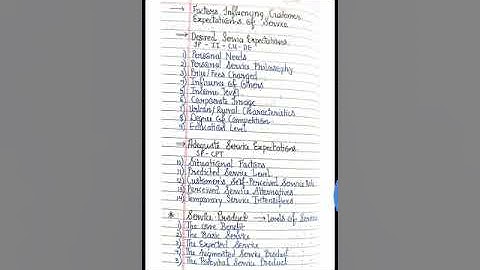 → Factors Influencing Customer
Expectations of Service
→ Desired Service Expectations
JP - II - CU - DE
1) Personal Needs
2) Personal Service Philosophy
3) Price/Fees Charged
4) Influence of Others
5) Income level
6) Corporate Image
7) Urban/Rural Characteristics
8) Degree of Competition
9) Education Level
→ Adequate Service Expectations
SP - CPT
10) Situational Factors
11) Predicted Service Level
12) Customer's Self-Perceived Service
13) Perceived Service Alternatives
14) Temporary Service Intensifiers
* Service Product → Levels of Service
1) The Core Benefit
2) The Basic Service
3) The Expected Service
4) The Augmented Service Product
5) The Potential Service Product